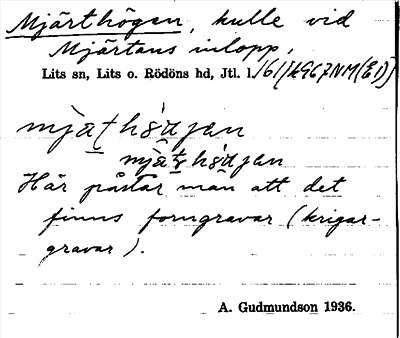 Mjärthögen, kulle vid
Mjärtans inlopp,
Lits sn, Lits o. Rödöns hd, Jtl. l.
mjàt hö̀ɑjan
mjàt hö̀ɑjan
Här påstår man att det
finns forngravar (krigar-
gravar).
A. Gudmundson 1936.